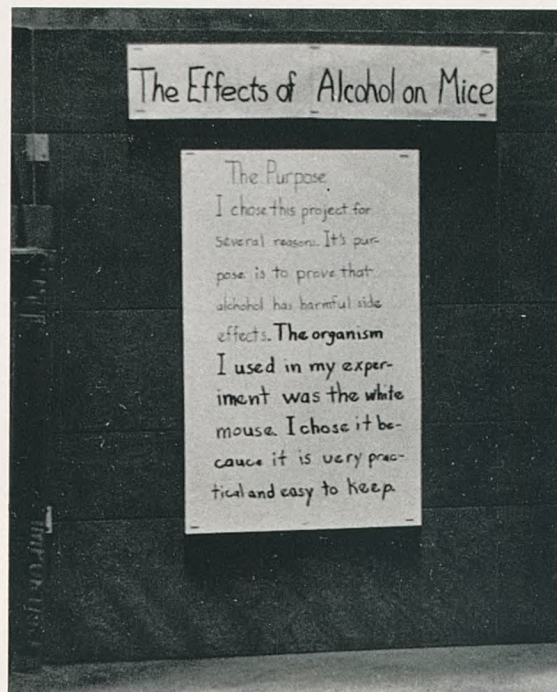 The Effects of Alcohol on Mice
The Purpose
I chose this project for
several reasons. It's pur-
pose is to prove that
alchohol has harmful side
effects. The organism
I used in my exper-
iment was the white
mouse. I chose it be-
cause it is very prac-
tical and easy to keep.